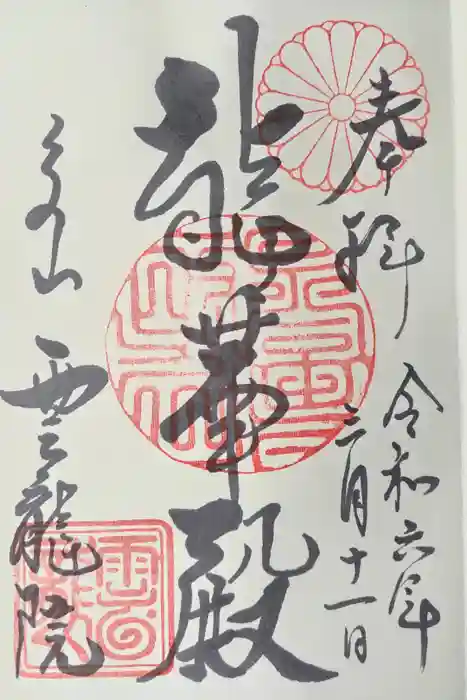 奉拝
令和六年
三月十一日
龍華殿
泉山 雲龍院